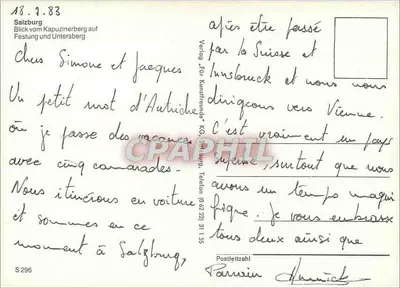 18.7.83
Salzburg
Blick vom Kapuzinerberg auf
Festung und Untersberg
Chers Simone et Jacques
Un petit mot d'Autriche
où je passe des vacances
avec cinq camarades.
Nous itinérons en voiture
et sommes en ce
moment à Salzburg,
S 296
Verlag „Für Kunstfreunde" KG, Telefon (0 62 22) 31 1 55
après être passé
par la Suisse et
Innsbruck et nous nous
dirigeons vers Vienne.
C'est vraiment un pays
superbe, surtout que nous
avons un temps magni
fique. Je vous embrasse
tous deux ainsi que
Postleitzahl
Parrain Annick
CPAPHIL